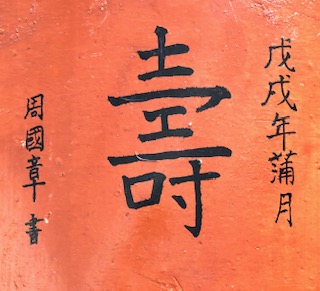 戊戌年蒲月
壽
周國章書